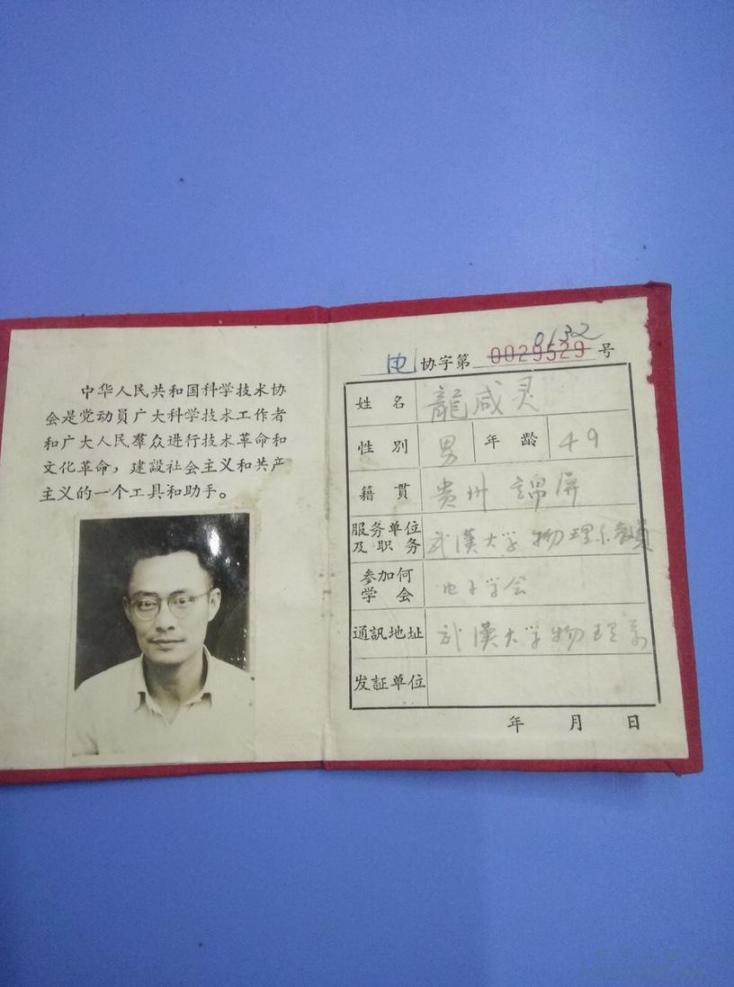 中华人民共和国科学技术协
会是党动员广大科学技术工作者
和广大人民羣众进行技术革命和
文化革命，建設社会主义和共产
主义的一个工具和助手。
电协字第 0029529 0132 号
姓名 龍咸灵
性别 男 年龄 49
籍貫 貴州 錦屏
服务单位
及职务 武漢大学物理系教員
参加何
学会 电子学会
通訊地址 武漢大学物理系
发証单位
年 月 日